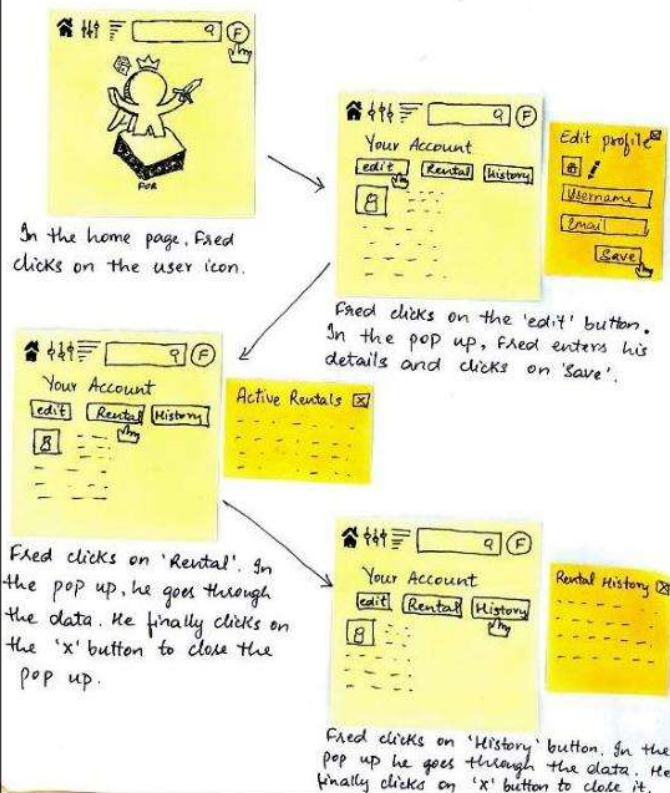 F
FOR
In the home page, Fred
clicks on the user icon.
F
Your Account
edit Rental History
Edit profile
Username
Email
Save
Fred clicks on the 'edit' button.
In the pop up, Fred enters his
details and clicks on 'Save'.
F
Your Account
edit Rental History
Active Rentals X
Fred clicks on 'Rental'. In
the pop up, he goes through
the data. He finally clicks on
the 'x' button to close the
pop up.
F
Your Account
edit Rental History
Rental History X
Fred clicks on 'History' button. In the
pop up he goes through the data. He
finally clicks on 'x' button to close it.